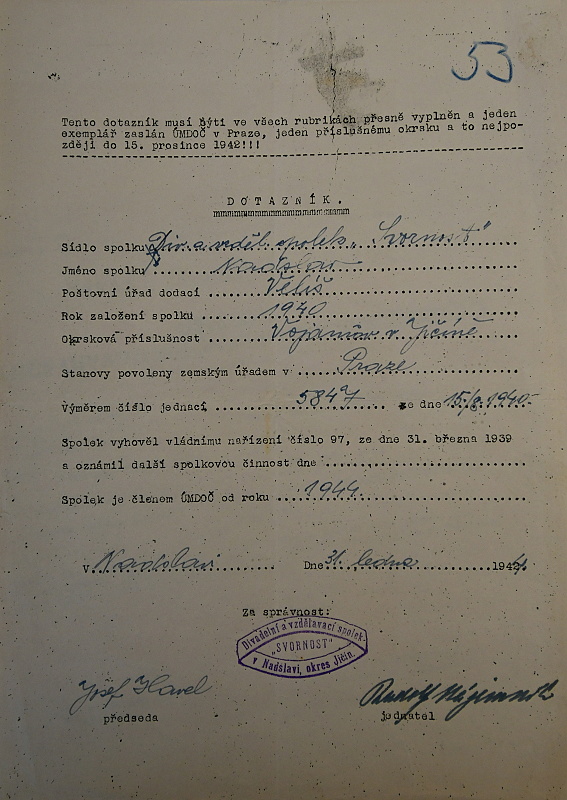 53
Tento dotazník musí býti ve všech rubrikách přesně vyplněn a jeden
exemplář zaslán ÚMDOČ v Praze, jeden příslušnému okrsku a to nejpo-
zději do 15. prosince 1942!!!
DOTAZNÍK.
Sídlo spolku Div. a vzděl. spolek „Svornost"
Jméno spolku Nadslav
Poštovní úřad dodací Veliš
Rok založení spolku 1940
Okrsková příslušnost Vojanův v Jičíně
Stanovy povoleny zemským úřadem v Praze
Výměrem číslo jednací 5847 ze dne 15/8.1940.
Spolek vyhověl vládnímu nařízení číslo 97, ze dne 31. března 1939
a oznámil další spolkovou činnost dne
Spolek je členem ÚMDOČ od roku 1944
V Nadslavi Dne 31. ledna 1944.
Za správnost:
Divadelní a vzdělávací spolek
„SVORNOST"
v Nadslavi, okres Jičín.
Josef Havel Rudolf
předseda jednatel